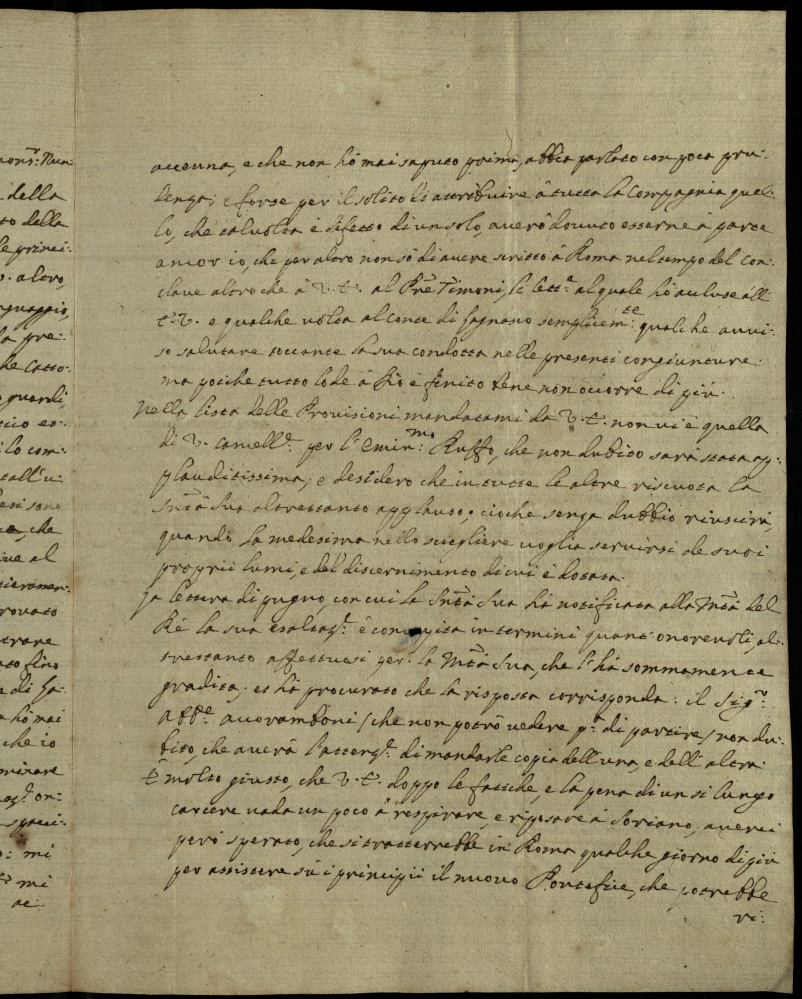 mons.r Nun:
della
to della
le princi:
altro,
nguaggio,
la pre:
he Catto:
guardi,
tico es:
lo com:
tall'u:
esi sono
che
ive al
rovato
trare
to fino
di Ga:
hò mai
che io
minare
on:
speci:
mi
mi
accenna, e che non hò mai saputo prima, abbia parlato con poca pru:
denza; e forse per il solito di attribuire à tutta la Compagnia quel:
lo, che talvolta è difetto di un solo, averò dovuto esserne à parte
ancor io, che per altro non sò di avere scritto à Roma nel tempo del Con:
clave altro che à V. E. al Prê Timoni, le lett.e al quale hò accluse all'
E. V. e qualche volta al Conte di Fagnano semplicem.te qualche avvi:
so salutare toccante la sua condotta nelle presenti congiunture.
ma poiche tutto lode à Dio è finito bene non occorre di più.
Nella lista delle Provisioni mandatami da V. E. non vi è quella
di V. Cancell.e per l'Emin.mo Ruffo, che non dubito sarà stata ap:
plauditissima; e desidero che in tutte le altre riscuota la
Sntà Sua altrettanto applauso; cioche senza dubbio riuscirà,
quando la medesima nello scegliere voglia servirsi de suoi
proprii lumi, e del discernimento di cui è dotata.
La lettera di pugno, con cui la Sntà Sua hà notificata alla Mtà del
Rè la sua esaltaz.e è concepita in termini quant'onorevoli, al:
trettanto affettuosi per la Mtà Sua, che l'hà sommamente
gradita, et hà procurato che la risposta corrisponda: il Sig.r
Abb.e Avoramboni /che non potrò vedere p.a di partire/ non du:
bito, che averà l'attenz.e di mandarle copia dell'una, e dell'altra.
È molto giusto, che V. E. doppo le fatiche, e la pena di un sì lungo
carcere vada un poco à respirare, e riposare à Soriano, averei
però sperato, che si tratterrebbe in Roma qualche giorno di più
per assistere sù i principii il nuovo Pontefice, che potrebbe
ri: